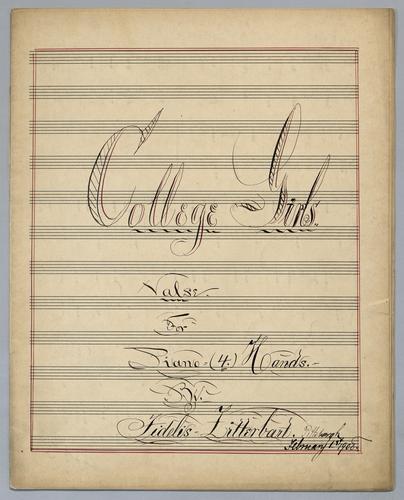 College Girls.
Valse.
For
Piano-(4.) Hands.-
By.
Fidelis-Zitterbart.
Pittsburgh
February 1st 1905.